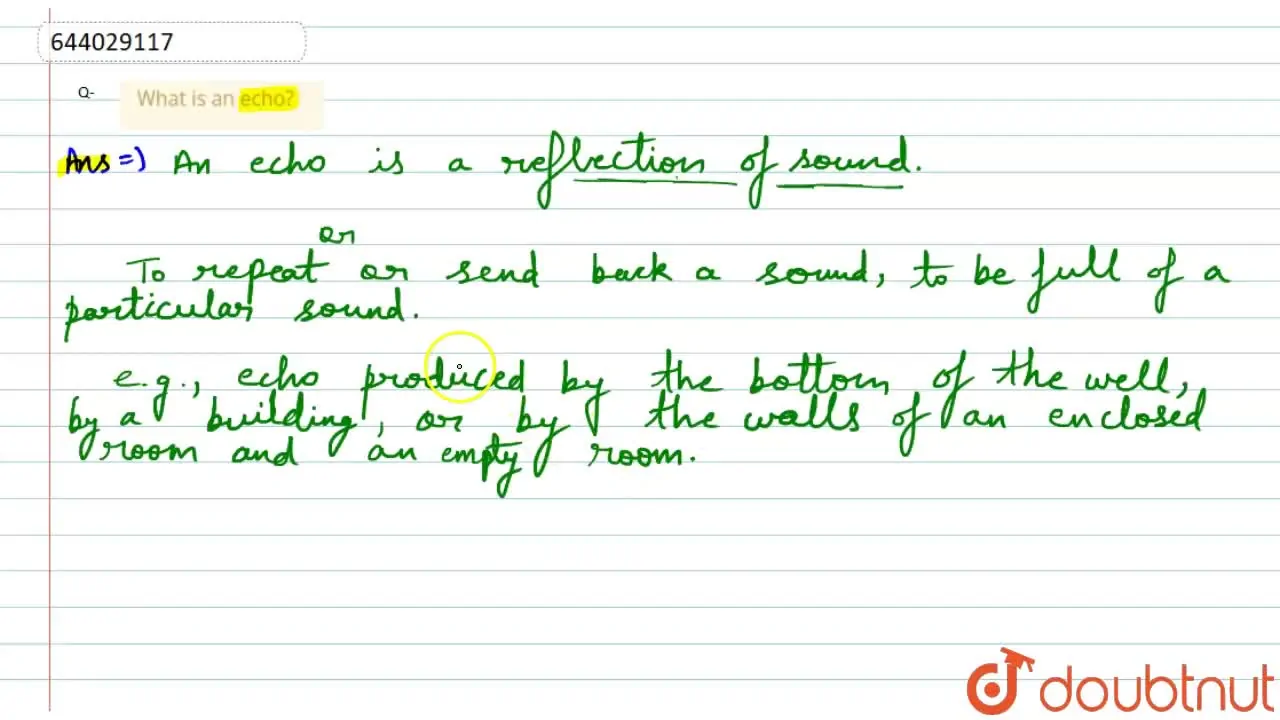 644029117
Q- What is an echo?
Ans => An echo is a reflection of sound.
or
To repeat or send back a sound, to be full of a
particular sound.
e.g., echo produced by the bottom of the well,
by a building, or by the walls of an enclosed
room and an empty room.
doubtnut